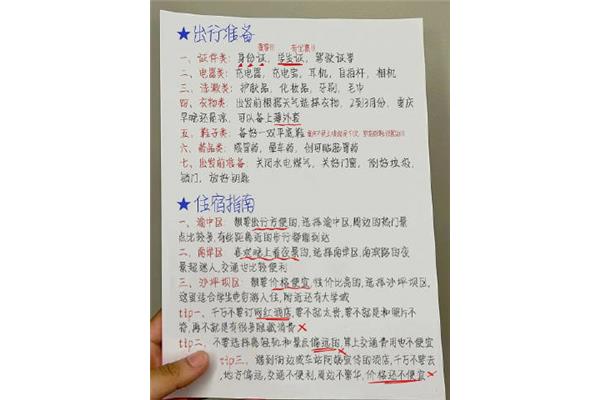 ★出行准备
重要!!! 有优惠!!
一、证件类:身份证,学生证,驾驶证等
二、电器类:充电器,充电宝,耳机,自拍杆,相机
三、洗漱类:护肤品,化妆品,牙刷,毛巾
四、衣物类:出发前根据天气选择衣物,2到3月份,重庆
早晚还是凉,可以备上薄外套
五、鞋子类:备好一双平底鞋
六、药品类:感冒药,晕车药,创可贴肠胃药
七、出发前准备:关闭水电煤气,关好门窗,倒好垃圾,
锁门,放好钥匙
★住宿指南
一、渝中区:想要出行方便的,选择渝中区,周边的热门景
点比较多,有些距离近的步行都能到达
二、南岸区:喜欢晚上看夜景的,选择南岸区,南滨路的夜
景超迷人,交通也比较便利
三、沙坪坝区:想要价格便宜,性价比高的,选择沙坪坝区,
这里适合学生电穷游人住,附近还有大学城
tip一、千万不要订网红酒店,要不就太贵,要不就是和照片不
符,再不就是有很多隐藏消费✗
tip二、不要选择离轻轨和景点偏远的,算上交通费用也不便宜
tip三、遇到街边或车站阿姨宣传的酒店,千万不要去
,地方偏远,交通不便利,周边不繁华,价格还不便宜✗